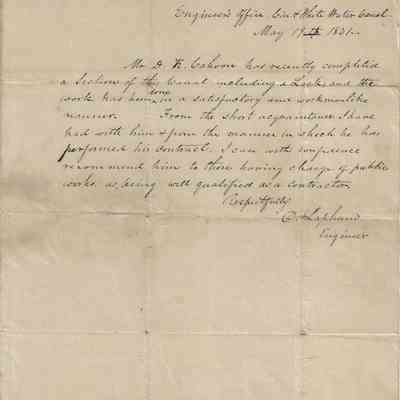 Engineer's Office, Cin. & White Water Canal
May 19th
Mr. D. K. Cahoon has recently completed
a Section of this Canal including a Lock, and the
work has been done in a satisfactory and workmanlike
manner. From the short acquaintance I have
had with him & from the manner in which he has
performed his contract. I can with confidence
recommend him to those having charge of public
works, as being well qualified as a contractor
Respectfully
D. Lapham
Engineer